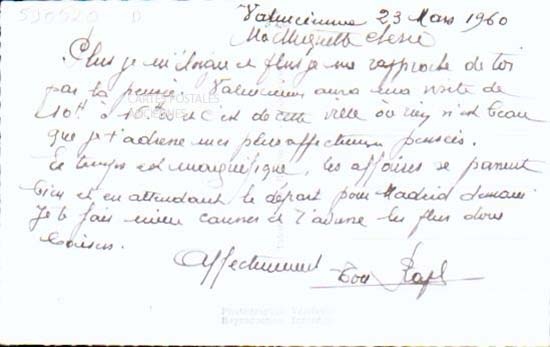 530520 D
Valenciennes 23 Mars 1960
Ma Muguette chérie
Plus je m'éloigne et plus je me rapproche de toi
par la pensée. Valenciennes aura ma visite de
10H à 16H et c'est de cette ville où rien n'est beau
que je t'adresse mes plus affectueuses pensées.
Le temps est magnifique, les affaires se
bien et en attendant le départ pour Madrid demain
Je te fais mille et t'adresse les plus doux
baisers.
Affectueusement
Ton
CARTES POSTALES
ANCIENNES